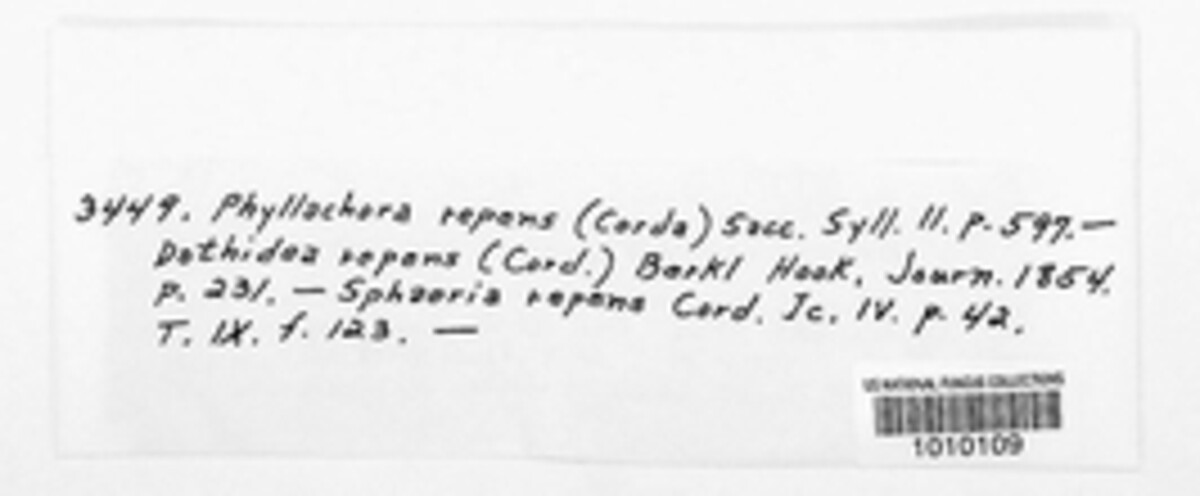 3449. Phyllachora repens (Corda) Sacc. Syll. II. p. 597. —
Dothidea repens (Cord.) Berkl Hook. Journ. 1854.
p. 231. — Sphaeria repens Cord. Jc. IV. p. 42.
T. IX. f. 123. —
US NATIONAL FUNGUS COLLECTIONS
1010109